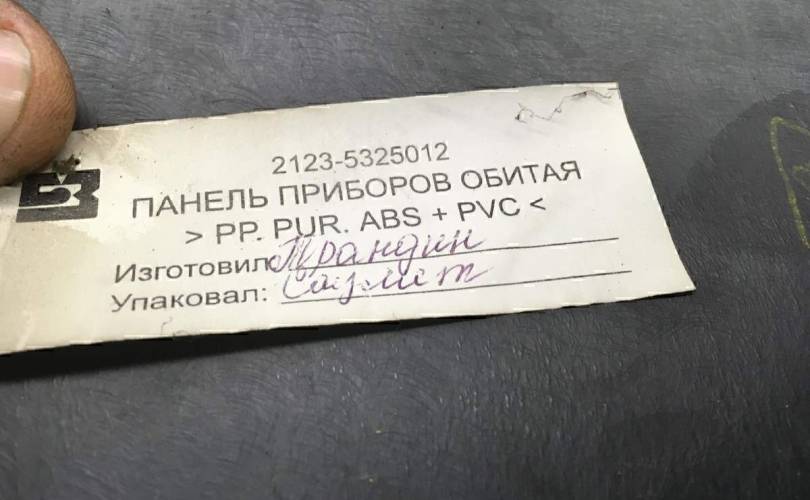 2123-5325012
ПАНЕЛЬ ПРИБОРОВ ОБИТАЯ
> PP. PUR. ABS + PVC <
Изготовил
Упаковал: